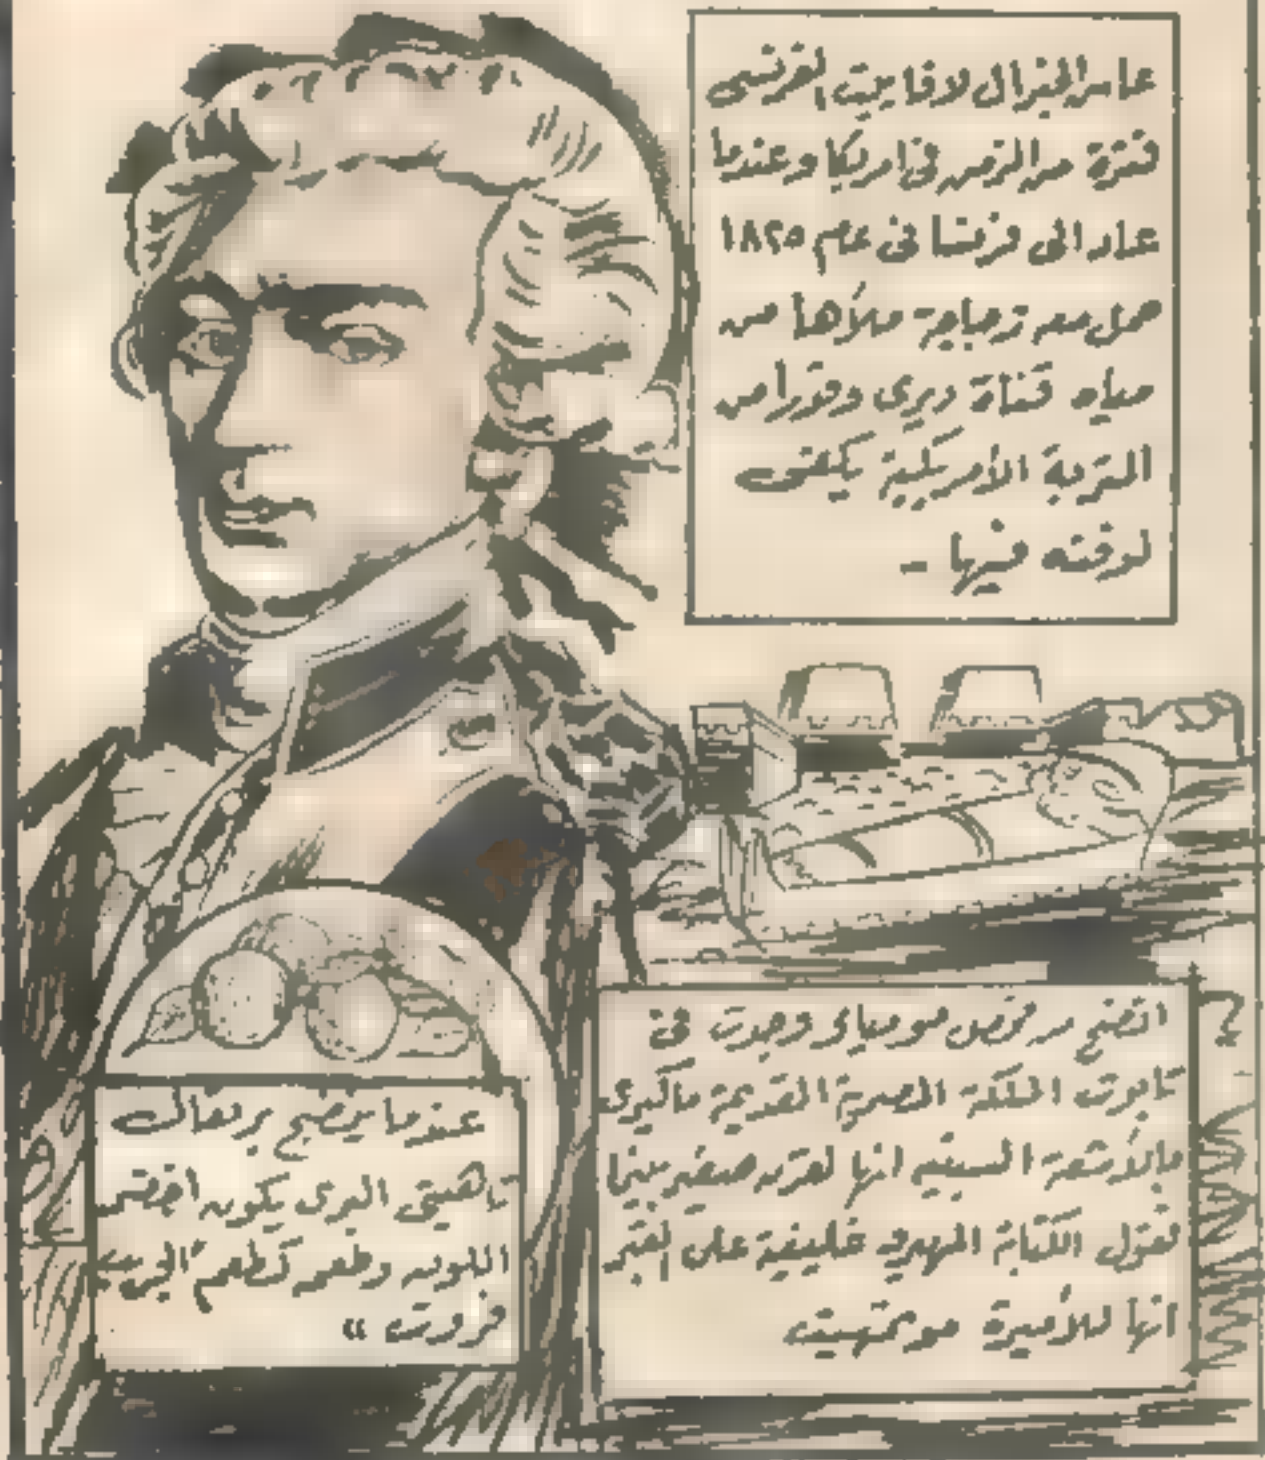 عاش الجنرال لافاييت الفرنسى
فترة من الزمن فى امريكا وعندما
عاد الى فرنسا فى عام ١٨٢٥
حمل معه زجاجة ملأها من
مياه قناة ديرى وقدرا من
التربة الأمريكية يكفى
لدفنه فيها -
اتضح من فحص مومياء وجدت فى
تابوت الملكة المصرية القديمة ماكيرى
بالأشعة السينيه انها لقرد صغير بينما
تقول الكتابة الهيروغليفية على القبر
انها للأميرة موتمحيت
عندما ينضج برتقال
تاهيتى البرى يكون اخضر
اللون وطعمه كطعم الجريب
فروت »